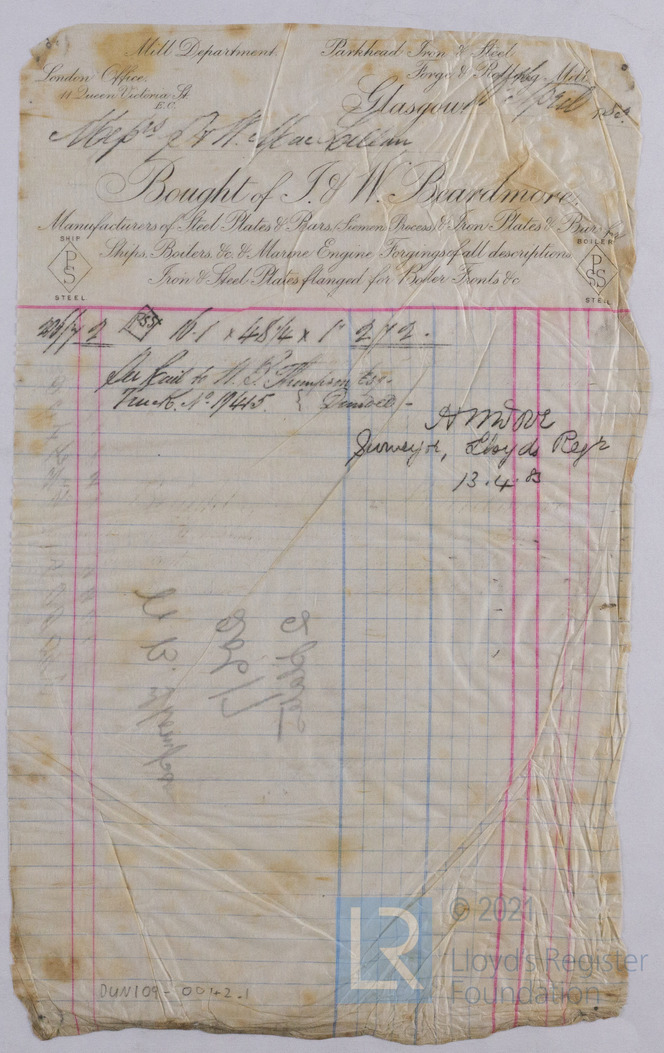 Mill Department. Parkhead Iron & Steel
London Office, Forge & Rolling Mills
11 Queen Victoria St.
E.C.
Glasgow April 188
Messrs P & W. MacLellan
Bought of I. & W. Beardmore,
Manufacturers of Steel Plates & Bars, (Siemens Process) & Iron Plates & Bars for
Ships, Boilers, &c. & Marine Engine Forgings of all descriptions
Iron & Steel Plates flanged for Boiler Fronts &c
SHIP
PS
STEEL
BOILER
PSS
STEEL
2 PSS 10.1 x 48 1/4 x 1"
Per Rail to W. B. Thompson Esq.
Truck. No. 19415 } Dundee -
Surveyor, Lloyds Regr
13.4.83
W B Thompson
DUN109-0042.1
LR
© 2021
Lloyd's Register
Foundation